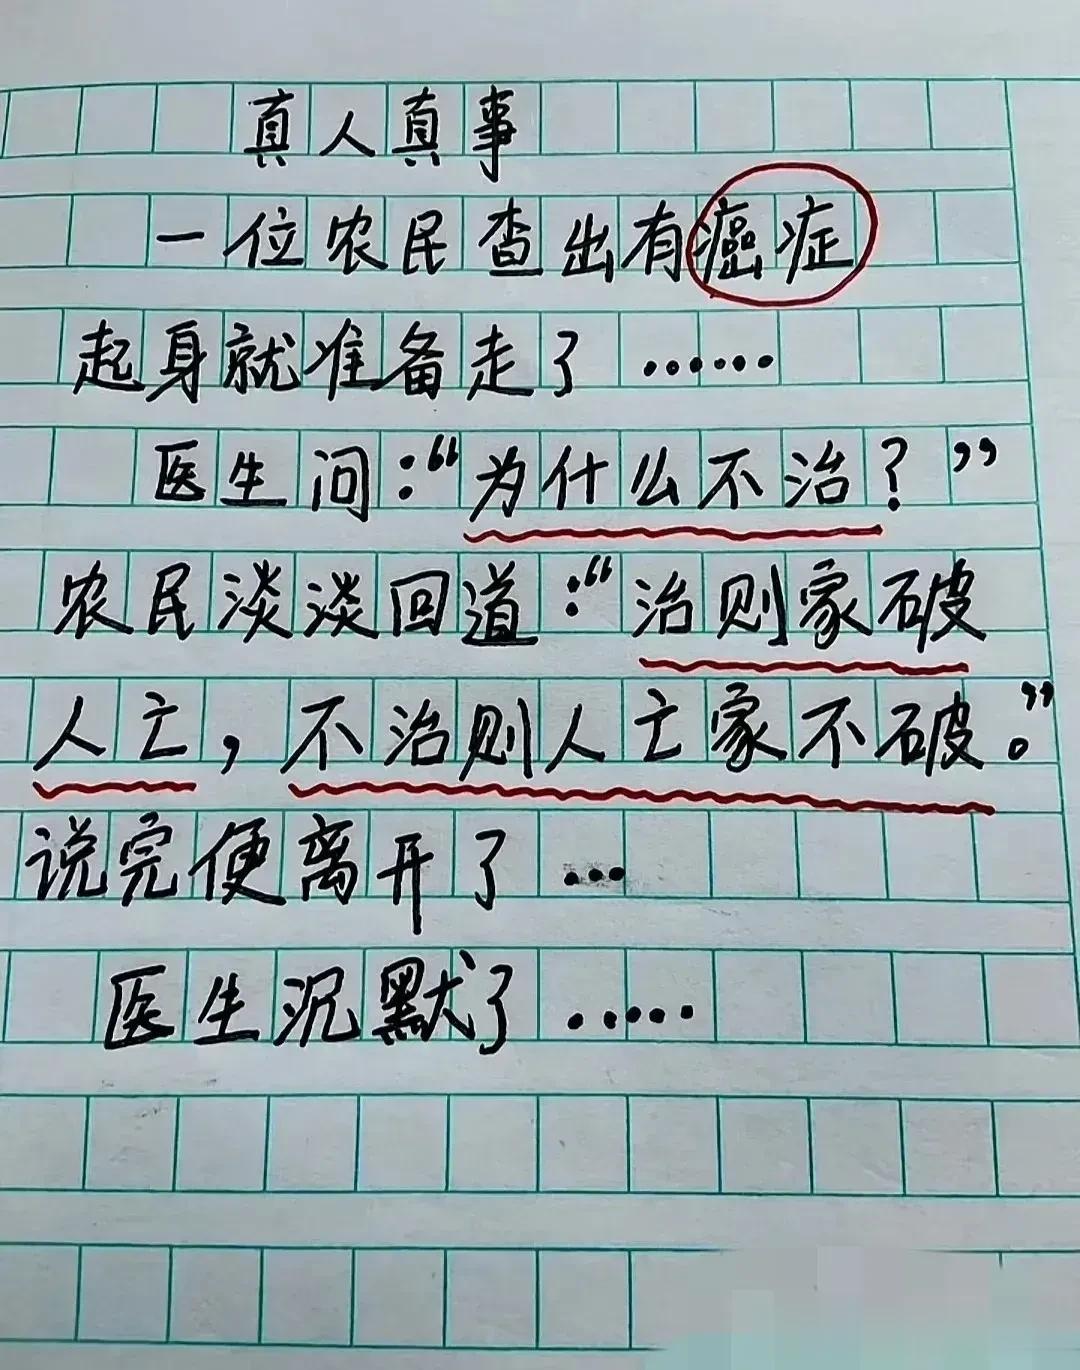 真人真事
一位农民查出有癌症
起身就准备走了……
医生问:“为什么不治?”
农民淡淡回道:“治则家破
人亡,不治则人亡家不破。”
说完便离开了…
医生沉默了.....